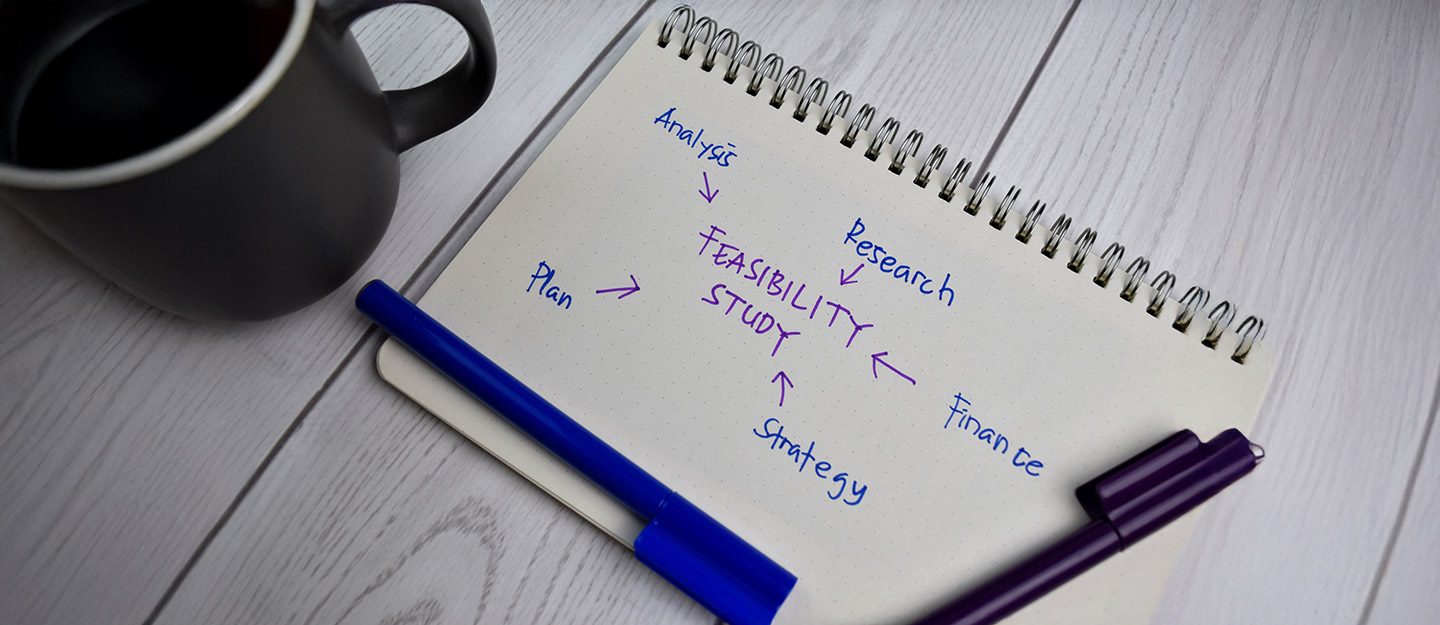 Analysis
Research
FEASIBILITY
STUDY
Plan
Finance
Strategy